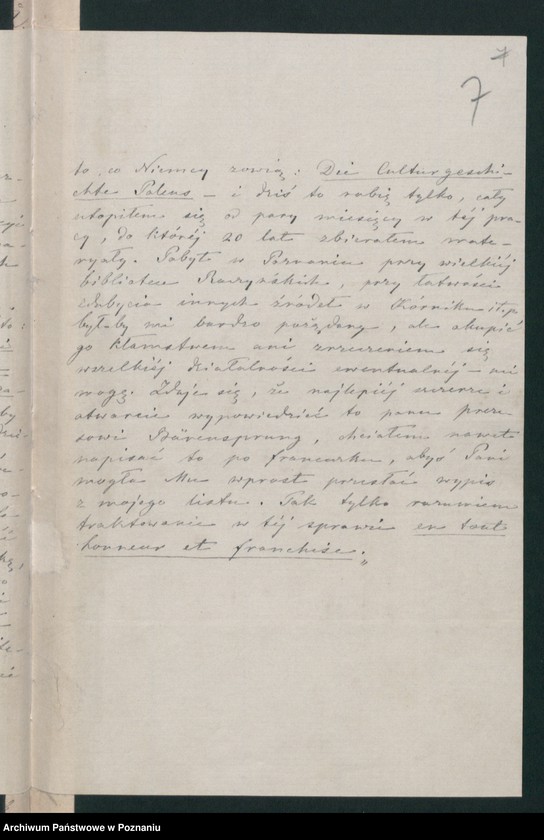 7
7
to, co Niemcy zowią: Die Culturgeschi-
chte Polens – i dziś to robię tylko, cały
utopiłem się od pary miesięcy w téj pra-
cy, do któréj 20 lat zbierałem mate-
ryały. Pobyt w Poznaniu przy wielkiéj
bibliotece Raczyńskich, przy łatwości
zdobycia innych źródeł w Kórniku itp
byłby mi bardzo pożądany, ale okupić
go kłamstwem ani zrzeczeniem się
wszelkiéj działalności ewentualnéj – nie
mogę. Zdaje się, że najlepiéj szczerze i
otwarcie wypowiedzieć to panu preze-
sowi Bärensprung, chciałem nawet
napisać to po francuzku, abyś Pani
mogła Mu wprost przesłać wypis
z mojego listu. Tak tylko rozumiem
traktowanie w téj sprawie en tout
honneur et franchise."
Archiwum Państwowe w Poznaniu